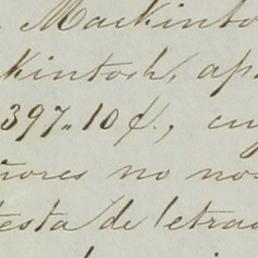 Mackinto
kintosh, ap
397.. 10 ¢., cu
ñores no no
testa de letra